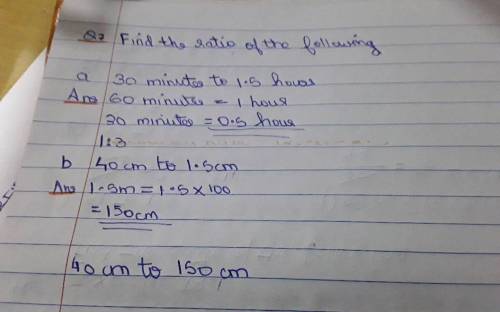 Q2 Find the ratio of the following
a 30 minutes to 1.5 hours
Ans 60 minutes = 1 hour
30 minutes = 0.5 hour
1:3
b 40cm to 1.5cm
Ans 1.5m = 1.5 × 100
= 150cm
40 cm to 150 cm